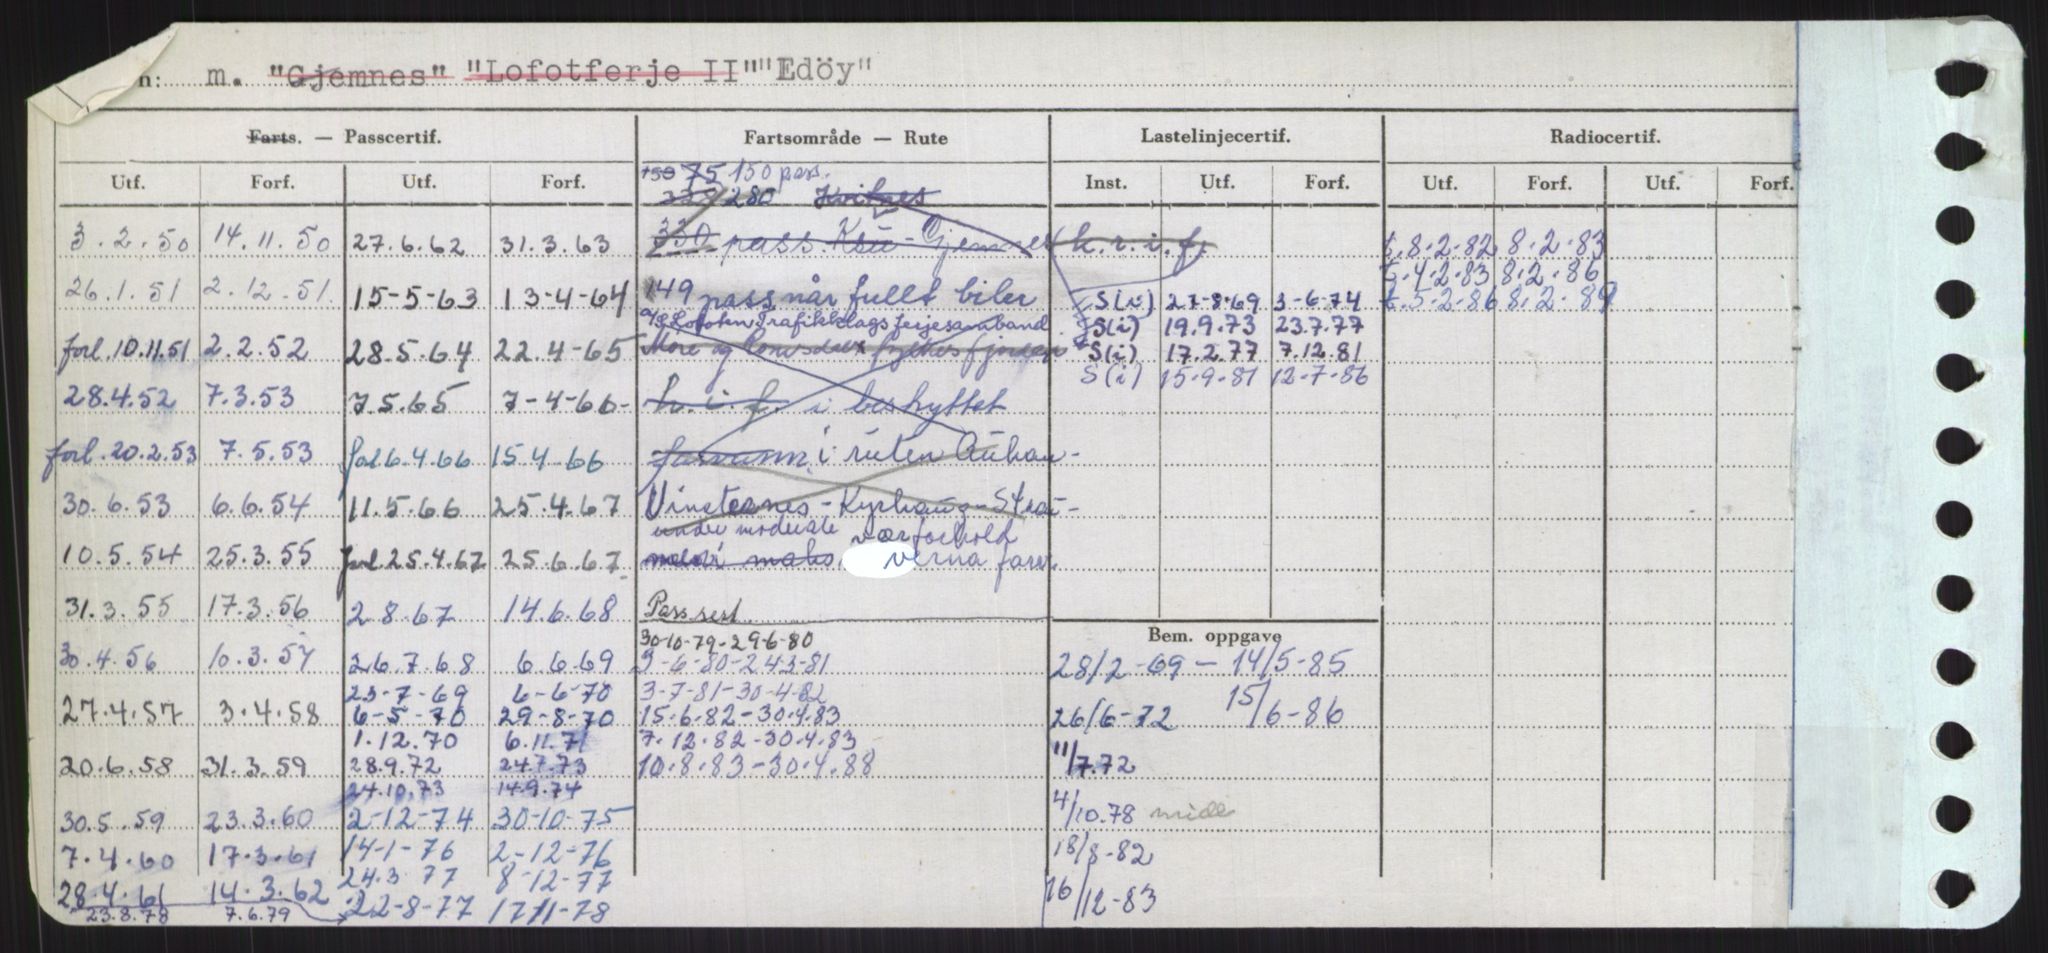 n: m. "Gjemnes" "Lofotferje II" "Edöy"
Farts. — Passcertif. Fartsområde — Rute Lastelinjecertif. Radiocertif.
Utf. Forf. Utf. Forf. Inst. Utf. Forf. Utf. Forf. Utf. Forf.
150 75 150 pass.
280 Kvitnes
3.2.50 14.11.50 27.6.62 31.3.63 330 pass. Ksu - Gjemnes k.r.i.f. t.8.2.82 8.2.83
t.4.2.83 8.2.86
26.1.51 2.12.51 15-5-63 13-4-64 149 pass når fullt biler S(i) 27-8-69 3-6-74 t.5-2-86 8.2.89
A/S Lofoten Trafikklags ferjesamband S(i) 19.9.73 23.7.77
forl. 10.11.51 2.2.52 28.5.64 22.4-65 Møre og Romsdals fylkes fjorder S(i) 17.2.77 7.12.81
S(i) 15.9.81 12.7.86
28.4.52 7.3.53 7.5.65 7-4-66- h.i.f. i beskyttet
forl. 20.2.53 7.5.53 forl 6.4.66 15.4.66 i ruten Aühau-
30.6.53 6.6.54 11.5.66 25.4.67 Vinsternes - Kyrhaug -
under moderate værforhold
10.5.54 25.3.55 forl. 25.4.67 25.6.67 verna farv.
31.3.55 17.3.56 2.8.67 14.6.68 Pass.sert.
30-10-79-29-6-80 Bem. oppgave
30.4.56 10.3.57 26.7.68 6.6.69 9-6-80-24.3-81 28/2-69 - 14/5-85
23-7-69 6-6-70 3-7-81-30-4-82
27.4.57 3.4.58 6-5-70 29-8-70 15.6.82-30.4.83 26/6-72 15/6-86
1.12.70 6.11.71 7.12.82-30.4.83
20.6.58 31.3.59 28.9.72 24.7.73 10.8.83-30.4.88 11/7.72
24.10.73 14.9.74
30.5.59 23.3.60 2-12-74 30-10-75 4/10.78
7.4.60 17.3.61 14-1-76 2-12-76 18/8-82
24.3.77 8-12-77
28.4.61 14.3.62 22-8-77 17/11-78 16/12-83
23.8.78 7.6.79